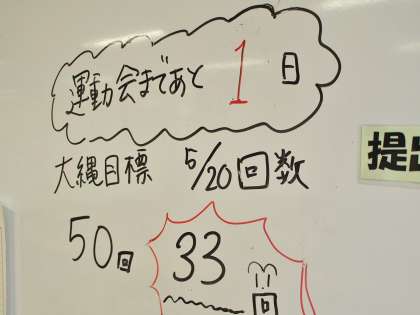 運動会まであと 1 日
大縄目標 5/20 回数
提出
50回 33回